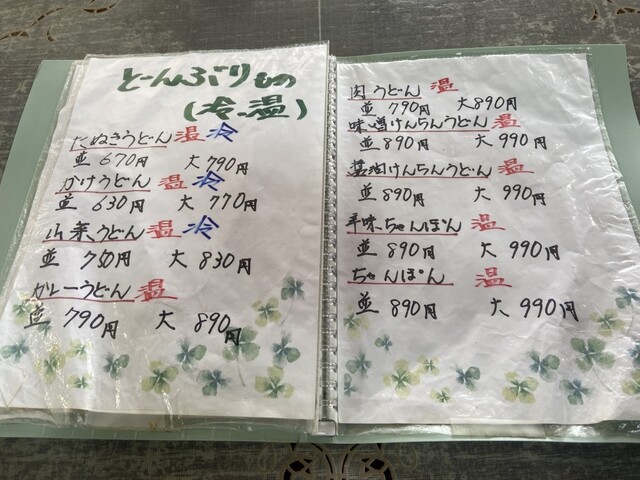 どーんぶりもの
(冷.温)
たぬきうどん 温 冷
並 670円 大 790円
かけうどん 温 冷
並 630円 大 770円
山菜うどん 温 冷
並 730円 大 830円
カレーうどん 温
並 790円 大 890円
肉うどん 温
並 790円 大 890円
味噌けんちんうどん 温
並 890円 大 990円
醤油けんちんうどん 温
並 890円 大 990円
辛味ちゃんぽん 温
並 890円 大 990円
ちゃんぽん 温
並 890円 大 990円